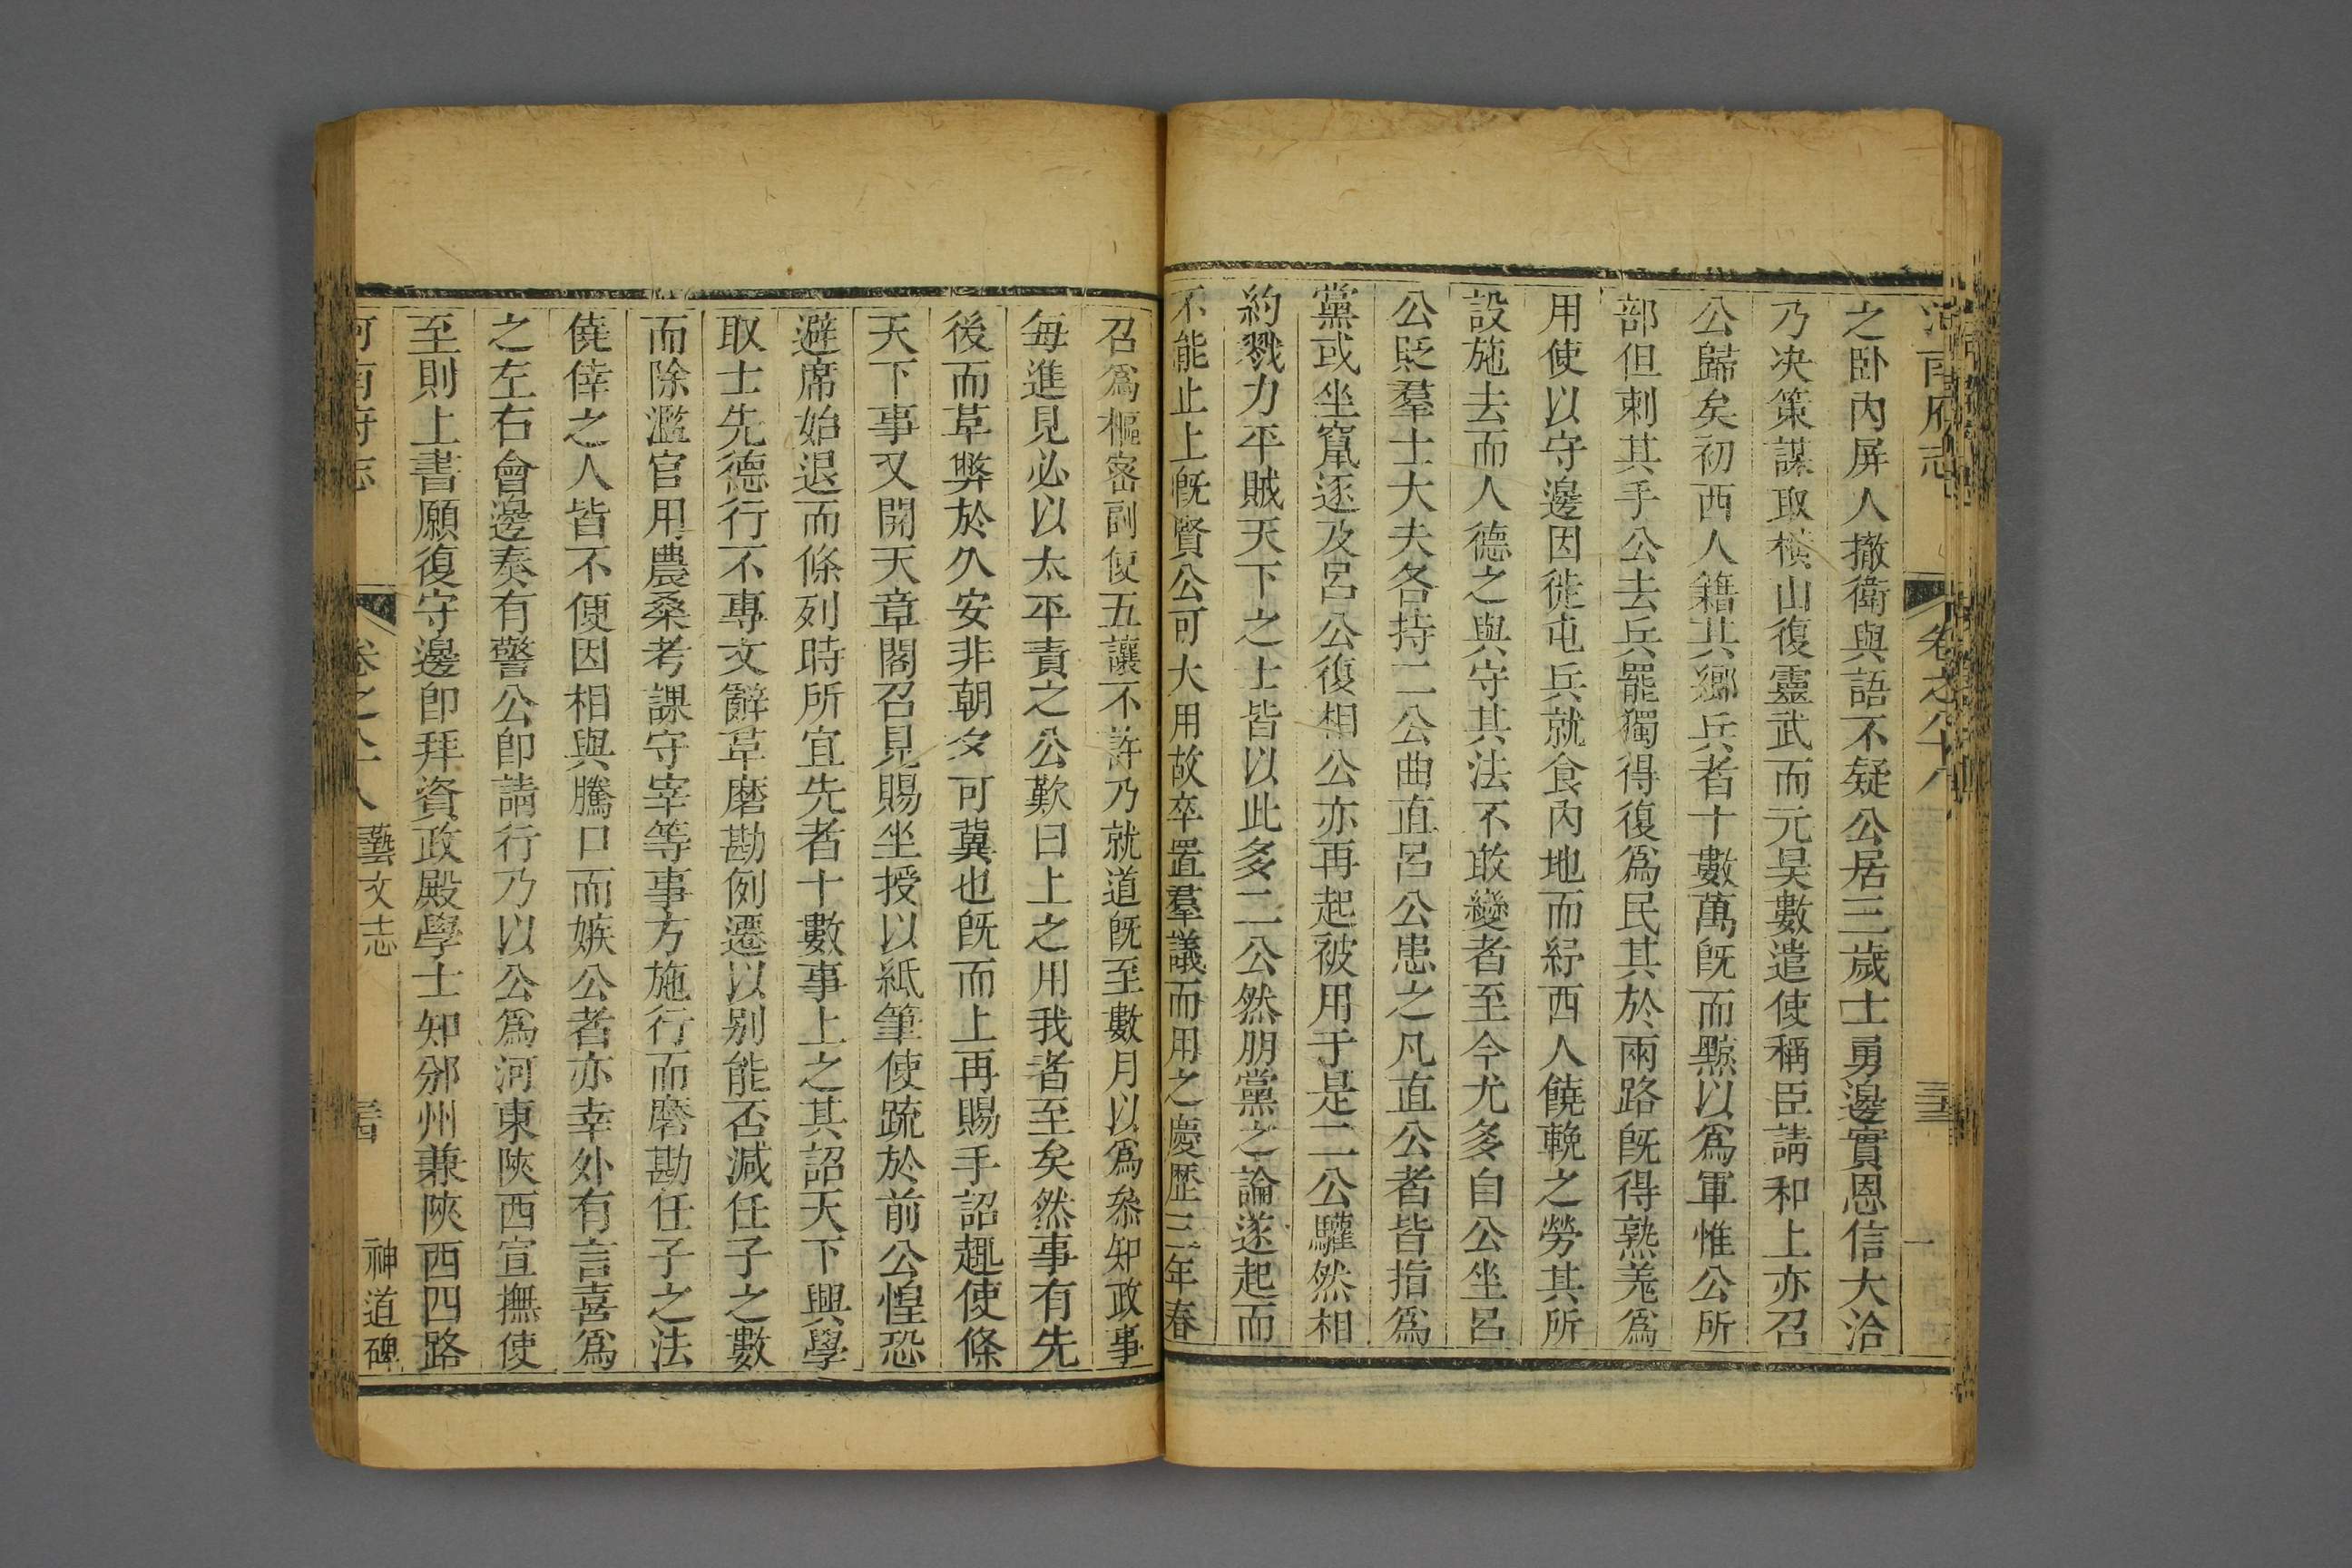 河南府志 卷之八十八 三三
之卧內屏人撤衛與語不疑公居三歲士勇邊實恩信大洽
乃决策謀取橫山復靈武而元昊數遣使稱臣請和上亦召
公歸矣初西人籍其鄉兵者十數萬旣而黥以爲軍惟公所
部但刺其手公去兵罷獨得復爲民其於兩路旣得熟羗爲
用使以守邊因徙屯兵就食內地而紓西人饒輓之勞其所
設施去而人德之與守其法不敢變者至今尤多自公坐呂
公貶羣士大夫各持二公曲直呂公患之凡直公者皆指爲
黨或坐竄逐及呂公復相公亦再起被用于是二公驩然相
約戮力平賊天下之士皆以此多二公然朋黨之論遂起而
不能止上旣賢公可大用故卒置羣議而用之慶歷三年春
召爲樞密副使五讓不許乃就道旣至數月以爲叅知政事
每進見必以太平責之公歎曰上之用我者至矣然事有先
後而革弊於久安非朝夕可冀也旣而上再賜手詔趣使條
天下事又開天章閣召見賜坐授以紙筆使疏於前公惶恐
避席始退而條列時所宜先者十數事上之其詔天下興學
取士先德行不專文辭革磨勘例遷以别能否減任子之數
而除濫官用農桑考課守宰等事方施行而磨勘任子之法
僥倖之人皆不便因相與騰口而嫉公者亦幸外有言喜爲
之左右會邊奏有警公卽請行乃以公爲河東陝西宣撫使
至則上書願復守邊卽拜資政殿學士知邠州兼陝西四路
河南府志 卷之八十八 藝文志 神道碑